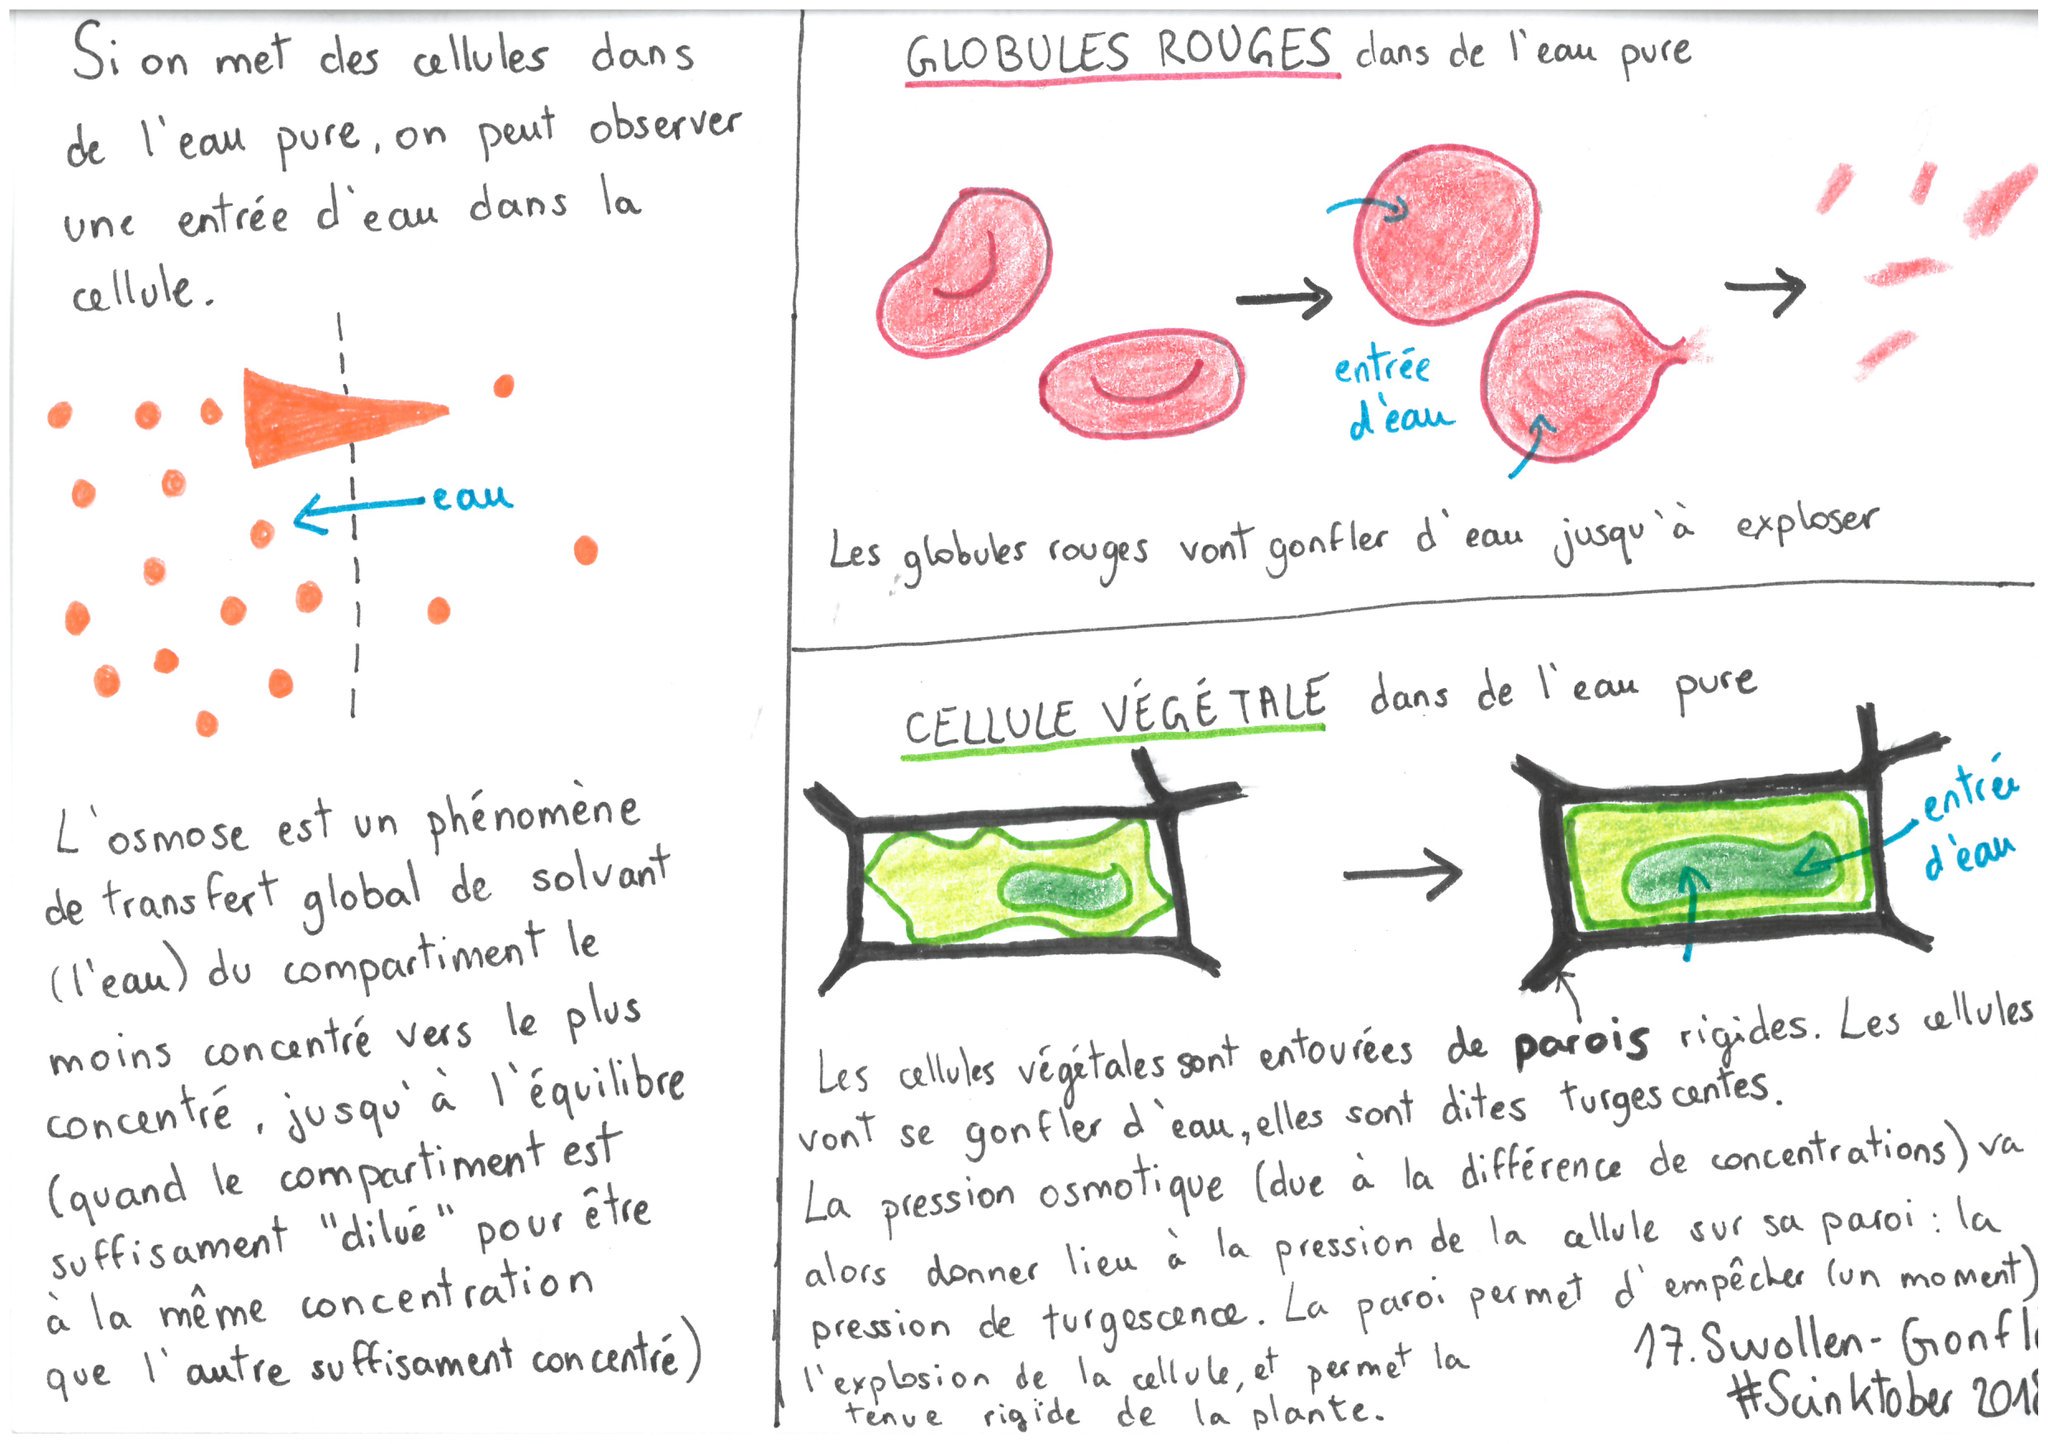 Si on met des cellules dans
de l'eau pure, on peut observer
une entrée d'eau dans la
cellule.
eau
L'osmose est un phénomène
de transfert global de solvant
(l'eau) du compartiment le
moins concentré vers le plus
concentré, jusqu'à l'équilibre
(quand le compartiment est
suffisament "dilué" pour être
à la même concentration
que l'autre suffisament concentré)
GLOBULES ROUGES dans de l'eau pure
entrée
d'eau
Les globules rouges vont gonfler d'eau jusqu'à exploser
CELLULE VÉGÉTALE dans de l'eau pure
entrée
d'eau
Les cellules végétales sont entourées de parois rigides. Les cellules
vont se gonfler d'eau, elles sont dites turgescentes.
La pression osmotique (due à la différence de concentrations) va
alors donner lieu à la pression de la cellule sur sa paroi : la
pression de turgescence. La paroi permet d'empêcher (un moment)
l'explosion de la cellule, et permet la
tenue rigide de la plante.
17. Swollen - Gonfl
#Scinktober 2018